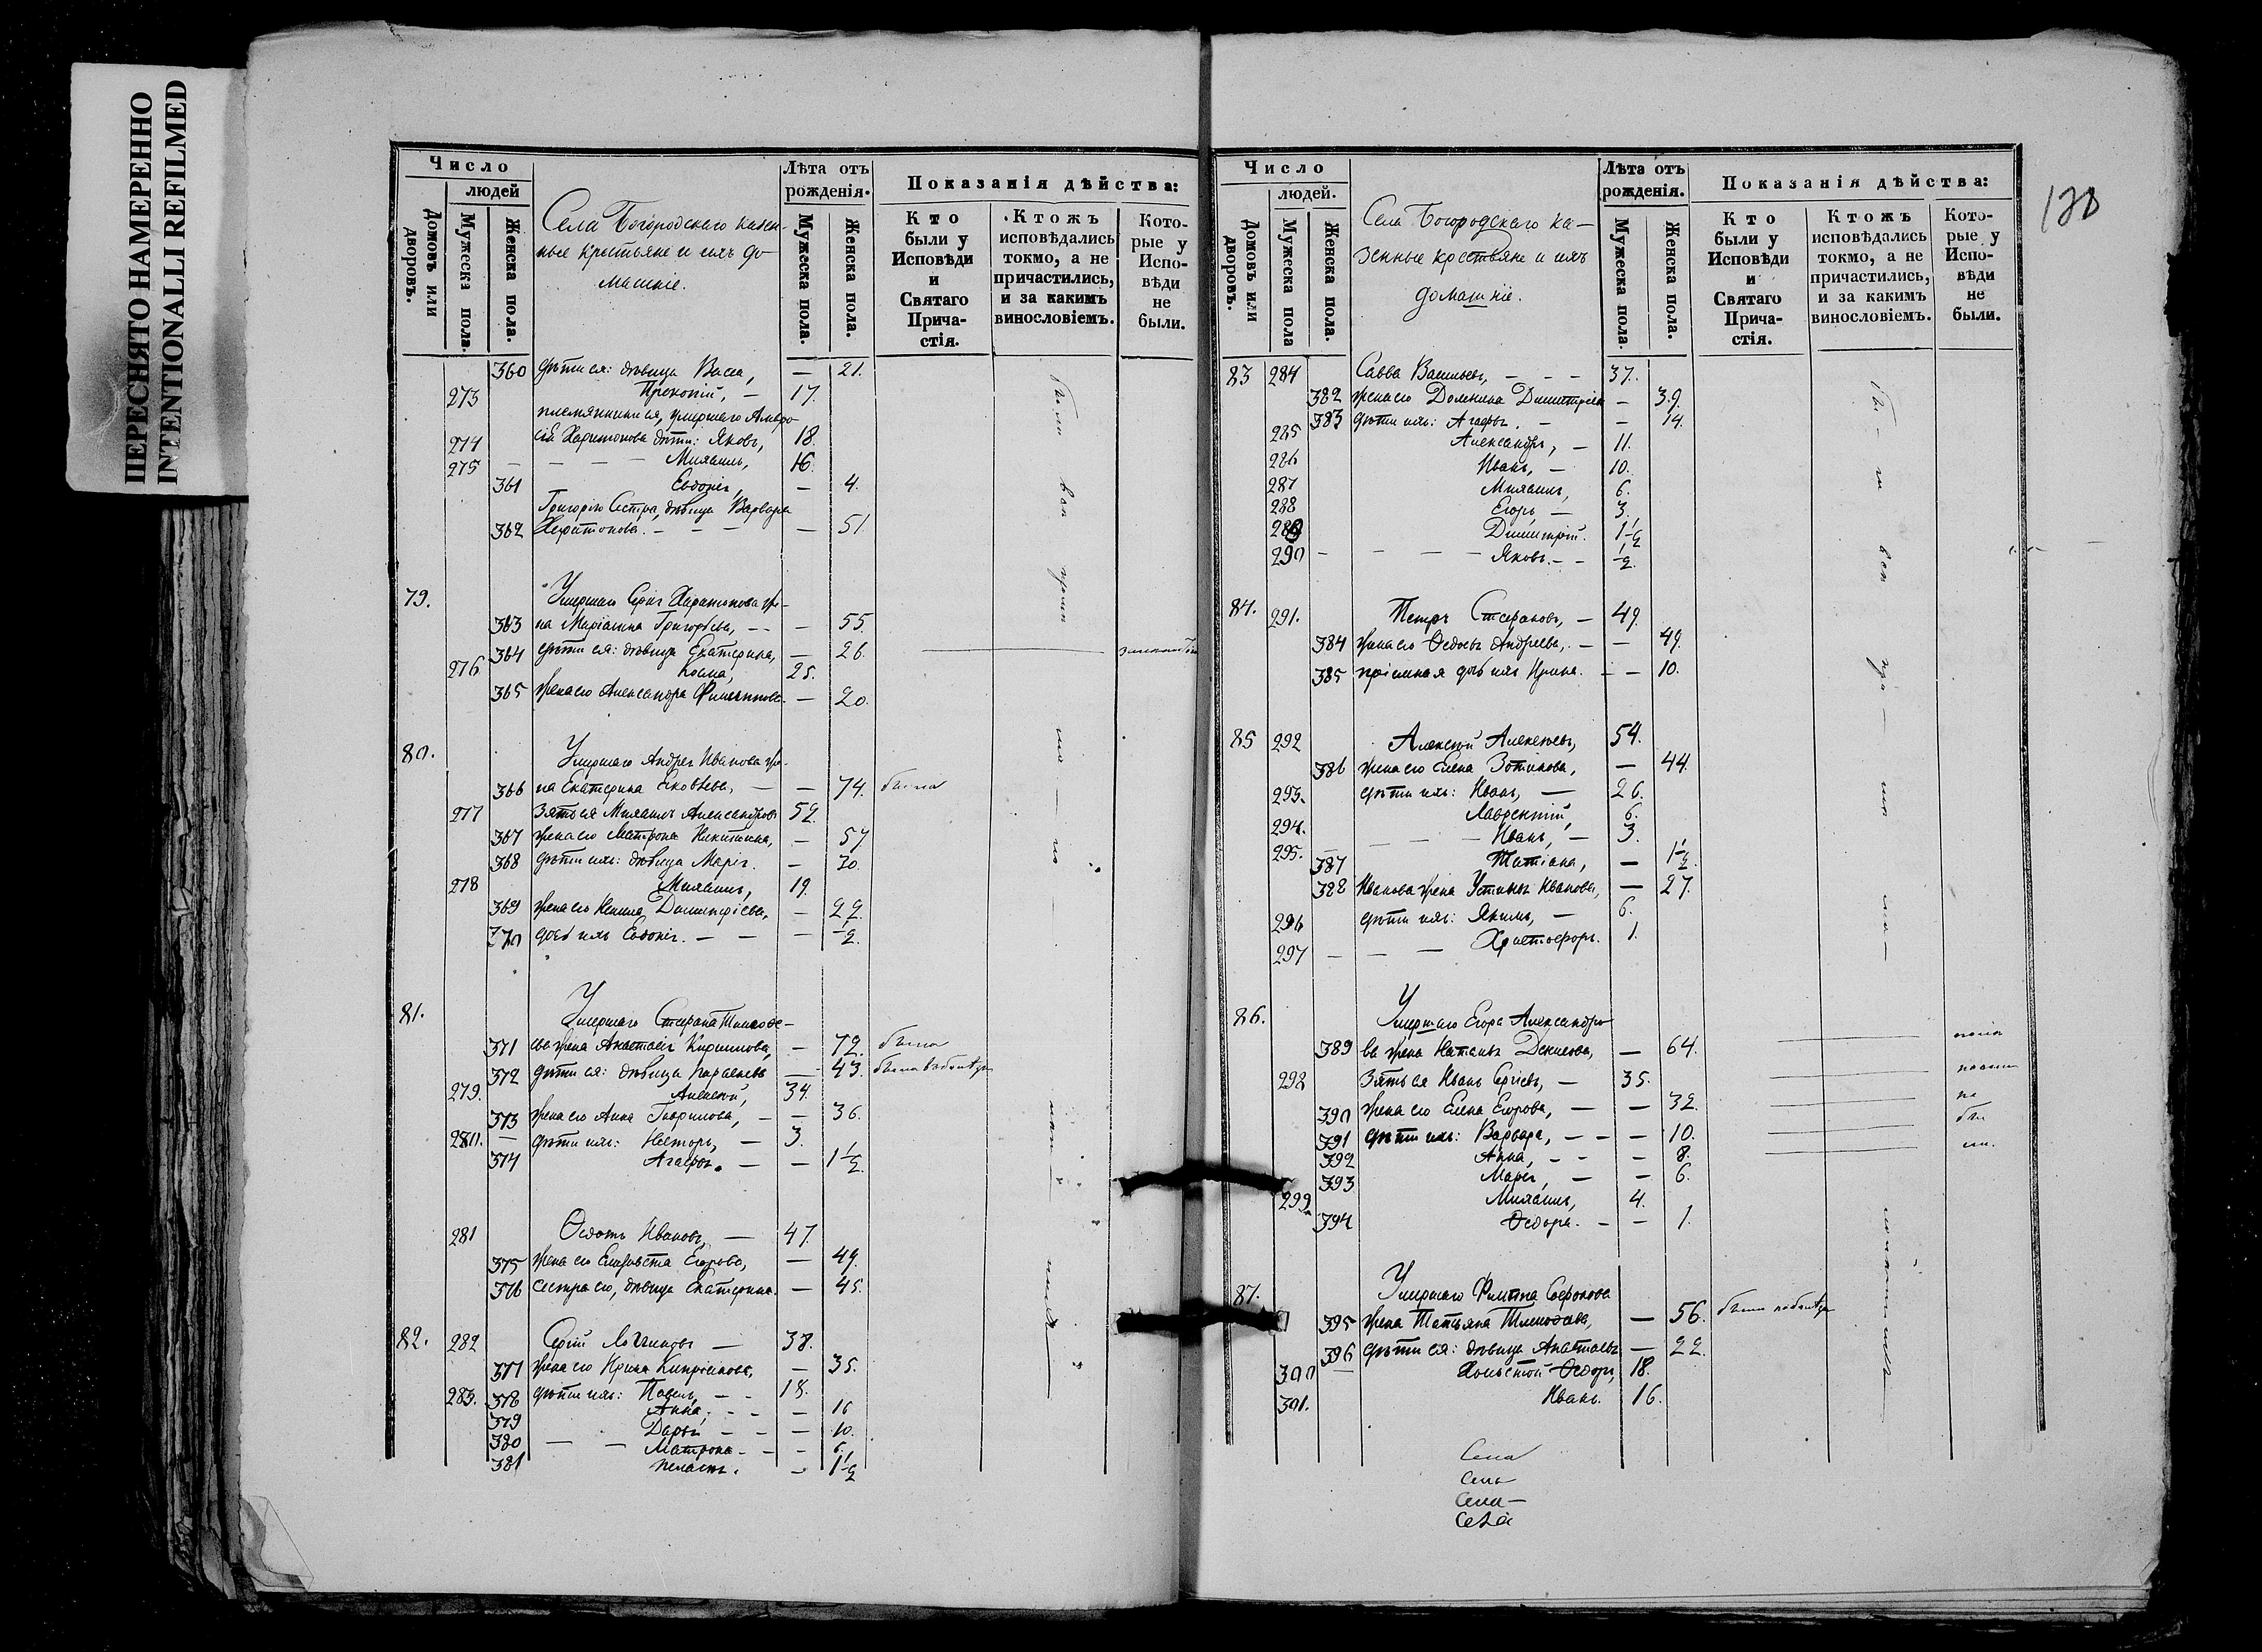 ПЕРЕСНЯТО НАМЕРЕННО
INTENTIONALLI REFILMED
Число
людей
Домовъ или дворовъ.
Мужеска пола.
Женска пола.
Села Богородскаго казен-
ные крестьяне и ихъ до-
машніе.
Лѣта отъ рожденія.
Мужеска пола.
Женска пола.
Показанія дѣйства:
Кто были у Исповѣди и Святаго Прича-стія.
Ктожъ исповѣдались токмо, а не причастились, и за какимъ винословіемъ.
Кото-рые у Испо-вѣди не были.
360 дѣти ея: дѣвица Васса, — 21.
273 Прокопій, — 17.
племянники ея, умершаго Амвро-
274 сія Харитонова дѣти: Яковъ, 18.
275 — — — Михаилъ, 16.
361 Евдокія, — 4.
Григорію Сестра, дѣвица Варвара
362 Харитонова. — — — — 51
79. Умершаго Сергія Харитонова же-
363 на Маріамна Григорьева, — — 55.
364 дѣти ея: дѣвица Екатерина, — 26.
276 Косма, 25.
365 жена его Александра Филиппова — 20.
80. Умершаго Андрея Иванова же-
366 на Екатерина Яковлева, — — 74. была
277 Зять ея Михаилъ Александровъ 52.
367 жена его Матрона Никитина, — 57
368 дѣти ихъ: дѣвица Марія. — 30
278 Михаилъ, 19.
369 жена его Димитріева, — 22.
370 дочь ихъ Евдокія. — — — 1/2.
81. Умершаго Стефана Тимофе-
371 ева жена Анастасія Кириллова, — 72. была
372 дѣти ея: дѣвица Параскева — 43.
279. Алексѣй, 34.
373 жена его Анна Гаврилова, — — 36.
280. — дѣти ихъ: Несторъ, — 3.
374 Агафія. — — 1 1/2.
281 Ѳедотъ Ивановъ, — 47.
375 жена его Елизавета Егорова, — 49.
376 сестра его, дѣвица Екатерина. — 45.
82. 282 Сергій Логгиновъ — 38.
377 жена его Ирина Кипріянова, — 35.
283. 378 дѣти ихъ: Павелъ, — — 18.
379 Анна, — — — 16
380 Дарья — — — 10.
— — Матрона — — — 6.
381 Пелагія. — 1 1/2
Число
людей.
Домовъ или дворовъ.
Мужеска пола
Женска пола.
Села Богородскаго ка-
зенные крестьяне и ихъ
домашніе.
Лѣта отъ рожденія.
Мужеска пола.
Женска пола.
Показанія дѣйства:
Кто были у Исповѣди и Святаго Прича-стія.
Ктожъ исповѣдались токмо, а не причастились, и за какимъ винословіемъ.
Кото-рые у Испо-вѣди не были.
130
83 284 Савва Васильевъ, — — — 37.
382 жена его Домнина Димитріева — 39.
383 дѣти ихъ: Агафья. — — 14.
285 Александръ, — 11.
286 Иванъ, — 10.
287 Михаилъ, 6.
288 Егоръ — 3.
289 Димитрій. 1 1/2
290 — — — — Яковъ. — — 1/2.
84. 291. Петръ Стефановъ, — 49.
384 жена его Ѳедосья Андреева, — — 49.
385 пріемная дочь ихъ Ирина. — — 10.
85 292 Алексѣй Алексѣевъ, 54.
386 жена его Елена Зотикова, — 44
293. дѣти ихъ: Иванъ, — 26.
294. Лаврентій, 6.
295. — — — — Иванъ, — 3.
387 Татіана, — 1 1/2.
388 Иванова жена Устинья Иванова, — 27.
296 дѣти ихъ: Якимъ, — 6.
297 — — — Христофоръ. 1.
86. Умершаго Егора Александро-
389 ва жена Наталья Денисова, — 64.
298 Зять ея Иванъ Сергіевъ, — 35.
390 жена его Елена Егорова, — — 32.
391 дѣти ихъ: Варвара, — — — 10.
392 Анна, — — — 8.
393 Марія, — — 6.
299 Михаилъ, 4.
394 Ѳедора. — — 1.
87. Умершаго Филиппа Софонова
395 жена Татьяна Тимофеева, — 56.
396 дѣти ея: дѣвица Анастасія — 22.
300 — Холостой Ѳедоръ, 18.
301. Иванъ. 16.
Села
Села
Села —
Села